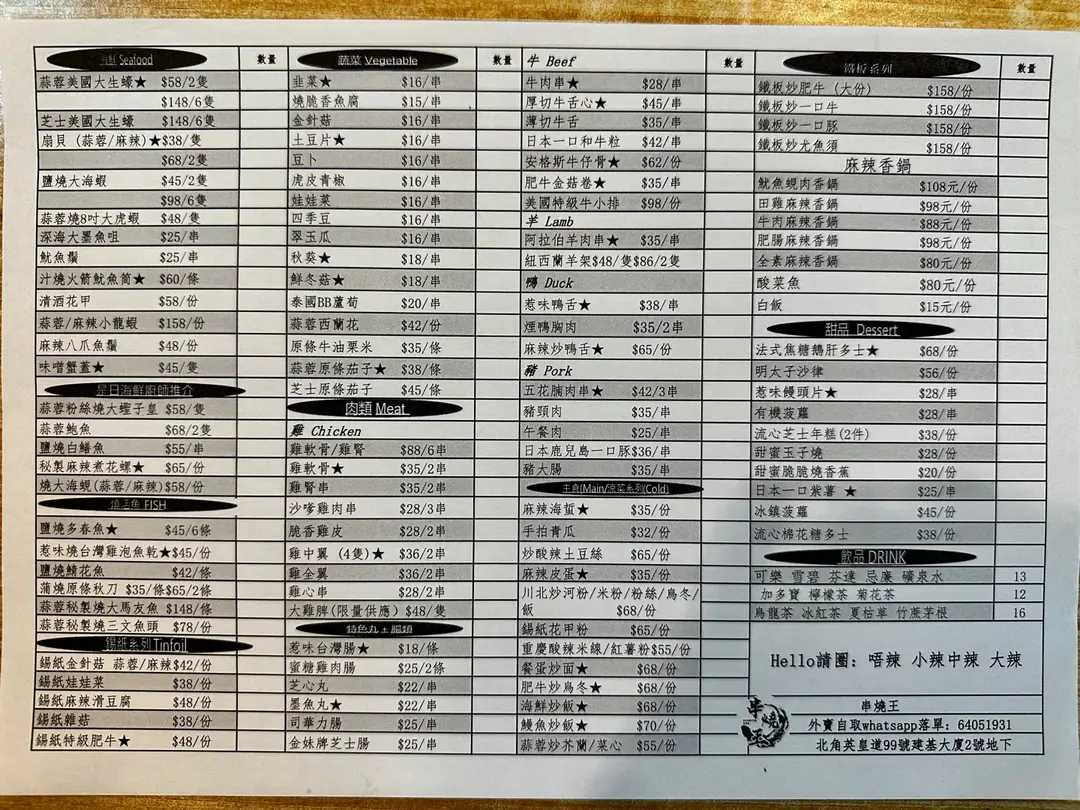 海鮮 Seafood 數量
蒜蓉美國大生蠔★ $58/2隻
$148/6隻
芝士美國大生蠔 $148/6隻
扇貝 (蒜蓉/麻辣)★$38/隻
$68/2隻
鹽燒大海蝦 $45/2隻
$98/6隻
蒜蓉燒8吋大虎蝦 $48/隻
深海大墨魚咀 $25/串
魷魚鬚 $25/串
汁燒火箭魷魚筒★ $60/條
清酒花甲 $58/份
蒜蓉/麻辣小龍蝦 $158/份
麻辣八爪魚鬚 $48/份
味噌蟹蓋★ $45/隻
是日海鮮廚師推介
蒜蓉粉絲燒大蟶子皇 $58/隻
蒜蓉鮑魚 $68/2隻
鹽燒白鱔魚 $55/串
秘製麻辣煮花螺★ $65/份
燒大海蜆(蒜蓉/麻辣)$58/份
燒活魚 FISH
鹽燒多春魚★ $45/6條
惹味燒台灣雞泡魚乾★$45/份
鹽燒鯖花魚 $42/條
蒲燒原條秋刀 $35/條$65/2條
蒜蓉秘製燒大馬友魚 $148/條
蒜蓉秘製燒三文魚頭 $78/份
錫紙系列Tinfoil
錫紙金針菇 蒜蓉/麻辣$42/份
錫紙娃娃菜 $38/份
錫紙麻辣滑豆腐 $48/份
錫紙雜菇 $38/份
錫紙特級肥牛★ $48/份
蔬菜 Vegetable 數量
韭菜★ $16/串
燒脆香魚腐 $15/串
金針菇 $16/串
土豆片★ $16/串
豆卜 $16/串
虎皮青椒 $16/串
娃娃菜 $16/串
四季豆 $16/串
翠玉瓜 $16/串
秋葵★ $18/串
鮮冬菇★ $18/串
泰國BB蘆荀 $20/串
蒜蓉西蘭花 $42/份
原條牛油粟米 $35/條
蒜蓉原條茄子★ $38/條
芝士原條茄子 $45/條
肉類 Meat
雞 Chicken
雞軟骨/雞腎 $88/6串
雞軟骨★ $35/2串
雞腎串 $35/2串
沙嗲雞肉串 $28/3串
脆香雞皮 $28/2串
雞中翼 (4隻)★ $36/2串
雞全翼 $36/2串
雞心串 $28/2串
大雞脾(限量供應) $48/隻
特色丸 腸類
惹味台灣腸★ $18/條
蜜糖雞肉腸 $25/2條
芝心丸 $22/串
墨魚丸★ $22/串
司華力腸 $25/串
金妹牌芝士腸 $25/串
牛 Beef 數量
牛肉串★ $28/串
厚切牛舌心★ $45/串
薄切牛舌 $35/串
日本一口和牛粒 $42/串
安格斯牛仔骨★ $62/份
肥牛金菇卷★ $35/串
美國特級牛小排 $98/份
羊 Lamb
阿拉伯羊肉串★ $35/串
紐西蘭羊架$48/隻$86/2隻
鴨 Duck
惹味鴨舌★ $38/串
煙鴨胸肉 $35/2串
麻辣炒鴨舌★ $65/份
豬 Pork
五花腩肉串★ $42/3串
豬頸肉 $35/串
午餐肉 $25/串
日本鹿兒島一口豚$36/串
豬大腸 $35/串
主食(Main/涼菜系列(Cold)
麻辣海蜇★ $35/份
手拍青瓜 $32/份
炒酸辣土豆絲 $65/份
麻辣皮蛋★ $35/份
川北炒河粉/米粉/粉絲/烏冬/
飯 $68/份
錫紙花甲粉 $65/份
重慶酸辣米線/紅薯粉$55/份
餐蛋炒面★ $68/份
肥牛炒烏冬★ $68/份
海鮮炒飯★ $68/份
鰻魚炒飯★ $70/份
蒜蓉炒芥蘭/菜心 $55/份
鐵板系列 數量
鐵板炒肥牛 (大份) $158/份
鐵板炒一口牛 $158/份
鐵板炒一口豚 $158/份
鐵板炒尤魚須 $158/份
麻辣香鍋
魷魚蜆肉香鍋 $108元/份
田雞麻辣香鍋 $98元/份
牛肉麻辣香鍋 $88元/份
肥腸麻辣香鍋 $98元/份
全素麻辣香鍋 $80元/份
酸菜魚 $80元/份
白飯 $15元/份
甜品 Dessert
法式焦糖鵝肝多士★ $68/份
明太子沙律 $56/份
惹味饅頭片★ $28/串
有機菠蘿 $28/串
流心芝士年糕(2件) $38/份
甜蜜玉子燒 $28/份
甜蜜脆脆燒香蕉 $20/份
日本一口紫薯 ★ $25/串
冰鎮菠蘿 $45/份
流心棉花糖多士 $38/份
飲品 DRINK
可樂 雪碧 芬達 忌廉 礦泉水 13
加多寶 檸檬茶 菊花茶 12
烏龍茶 冰紅茶 夏枯草 竹蔗茅根 16
Hello請圈: 唔辣 小辣中辣 大辣
串燒王
串燒王
外賣自取whatsapp落單: 64051931
北角英皇道99號建基大廈2號地下